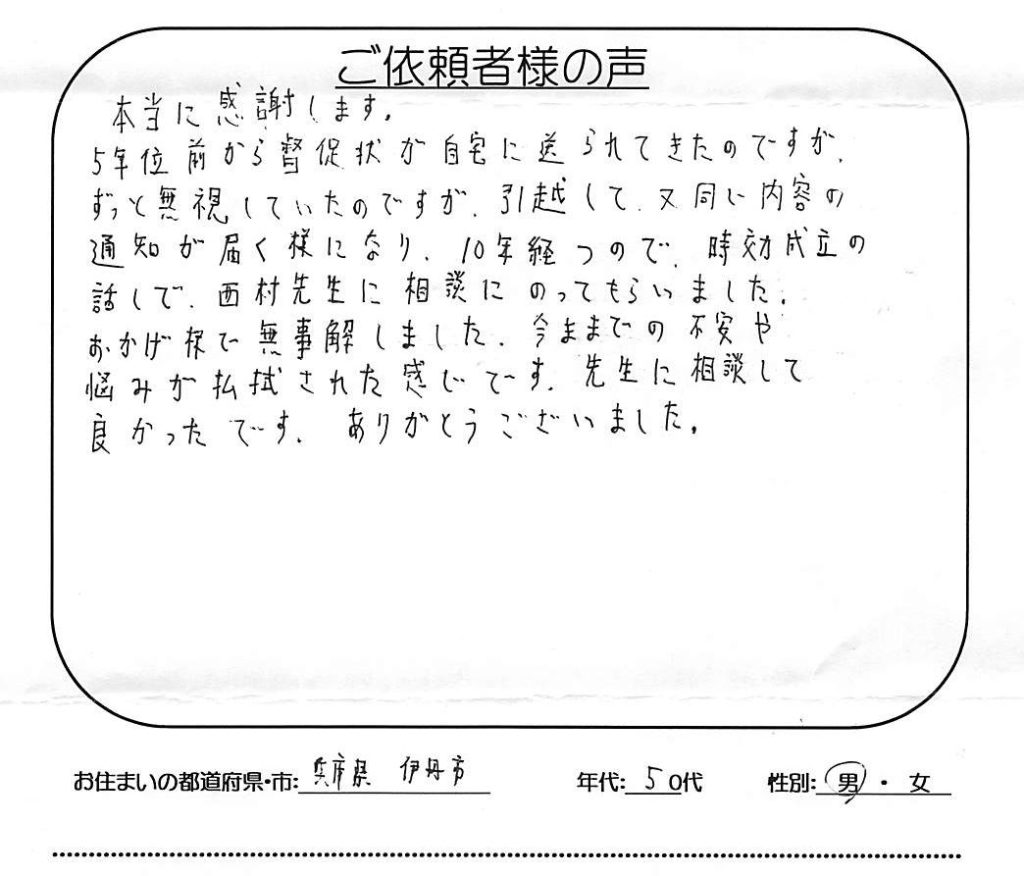 ご依頼者様の声
本当に感謝します。
5年位前から督促状が自宅に送られてきたのですが、
ずっと無視していたのですが、引越して、又同じ内容の
通知が届く様になり、10年経つので、時効成立の
話しで、西村先生に相談にのってもらいました。
おかげ様で無事解しました。今ままでの不安や
悩みが払拭された感じです。先生に相談して
良かったです。ありがとうございました。
お住まいの都道府県・市: 兵庫県 伊丹市 年代: 50代 性別: 男 ・ 女